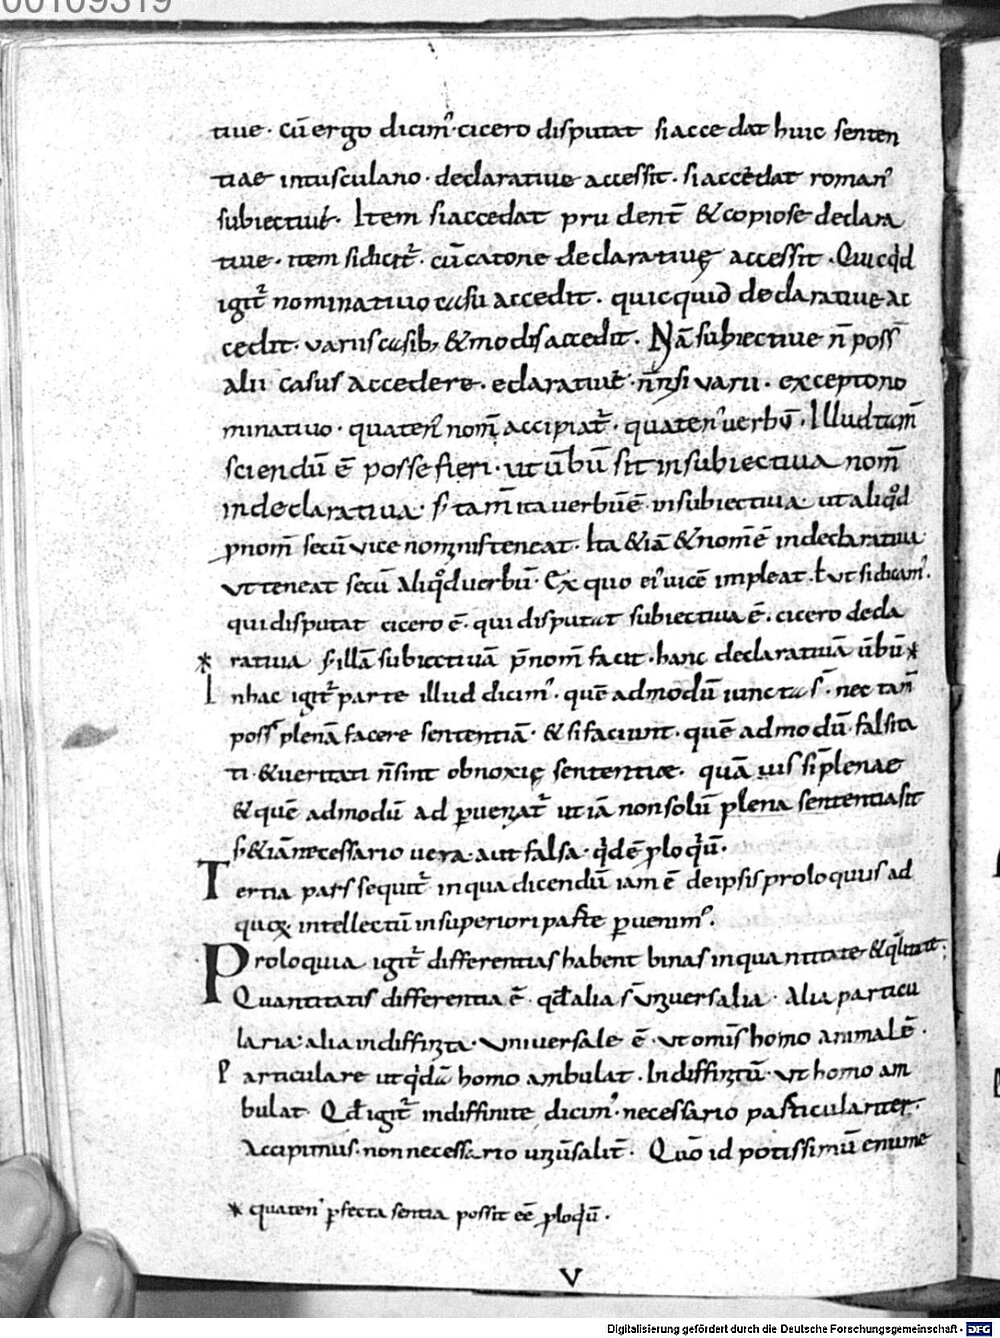 00109319
tiue · cū ergo dicim᾽ · cicero disputat si accedat huic senten
tiae intusculano · declaratiue accessit · si accedat roman᾽
subiectiue · Item si accedat prudent̄ & copiose declara
tiue · item si dicit᷑ · cū catone declaratiue accessit · Quicqd
igit᷑ nominatiuo casu accedit · quicquid declaratiue ac
cedit · variis casib; & modis accedit · Nā subiectiue n̄ poss̄
alii casus accedere · declaratiue n̄ nisi varii · excepto no
minatiuo · quaten᾽ nom̄ accipiat᷑ · quaten᾽ uerbū · Illud tam̄
sciendū ē posse fieri · ut ūbū sit in subiectiua nom̄
in declaratiua · s; tam̄ ita uerbū ē in subiectiua · ut aliqd
pnom̄ secū vice nominis teneat · Ita & iā & nom̄ ē in declaratiua
vt teneat secū aliqd uerbū · Ex quo ei᾽ vicē impleat · ł vt si dicam᾽ ·
qui disputat cicero ē · qui disputat subiectiua ē · cicero decla
* ratiua s; illā subiectiuā p̄nom̄ facit · hanc declaratiuā ūbū *
In hac igit᷑ parte illud dicim᾽ · quē admodū iuncta s̄ · nec tam̄
poss̄ plenā facere sententiā · & si faciunt · quē admodū falsita
ti · & ueritati n̄ sint obnoxię sententiae · quā uis sī plenae
& quē admodū ad pueniat᷑ ut iā non solū plena sententia sit
s; & iā necessario uera aut falsa · qd ē ploqū ·
Tertia pars sequit᷑ in qua dicendū iam ē de ipsis proloquiis ad
quoꝝ intellectū in superiori parte puenim᾽ ·
Proloquia igit᷑ differentias habent binas in quantitate & qlitate ·
Quantitatis differentia ē · qđ alia s̄ uniuersalia · Alia particu
laria · alia indiffinita · Vniuersale ē · vt omīs homo animal ē ·
Particulare ut qdā homo ambulat · Indiffinitū · vt homo am
bulat · Qđ igit᷑ indiffinite dicim᾽ · necessario particulariter ·
Accipimus · non necessario uniūsalit̄ · Quō id potissimū enume
* quaten᾽ pfecta sentia possit eē ploqū ·
V
Digitalisierung gefördert durch die Deutsche Forschungsgemeinschaft - DFG